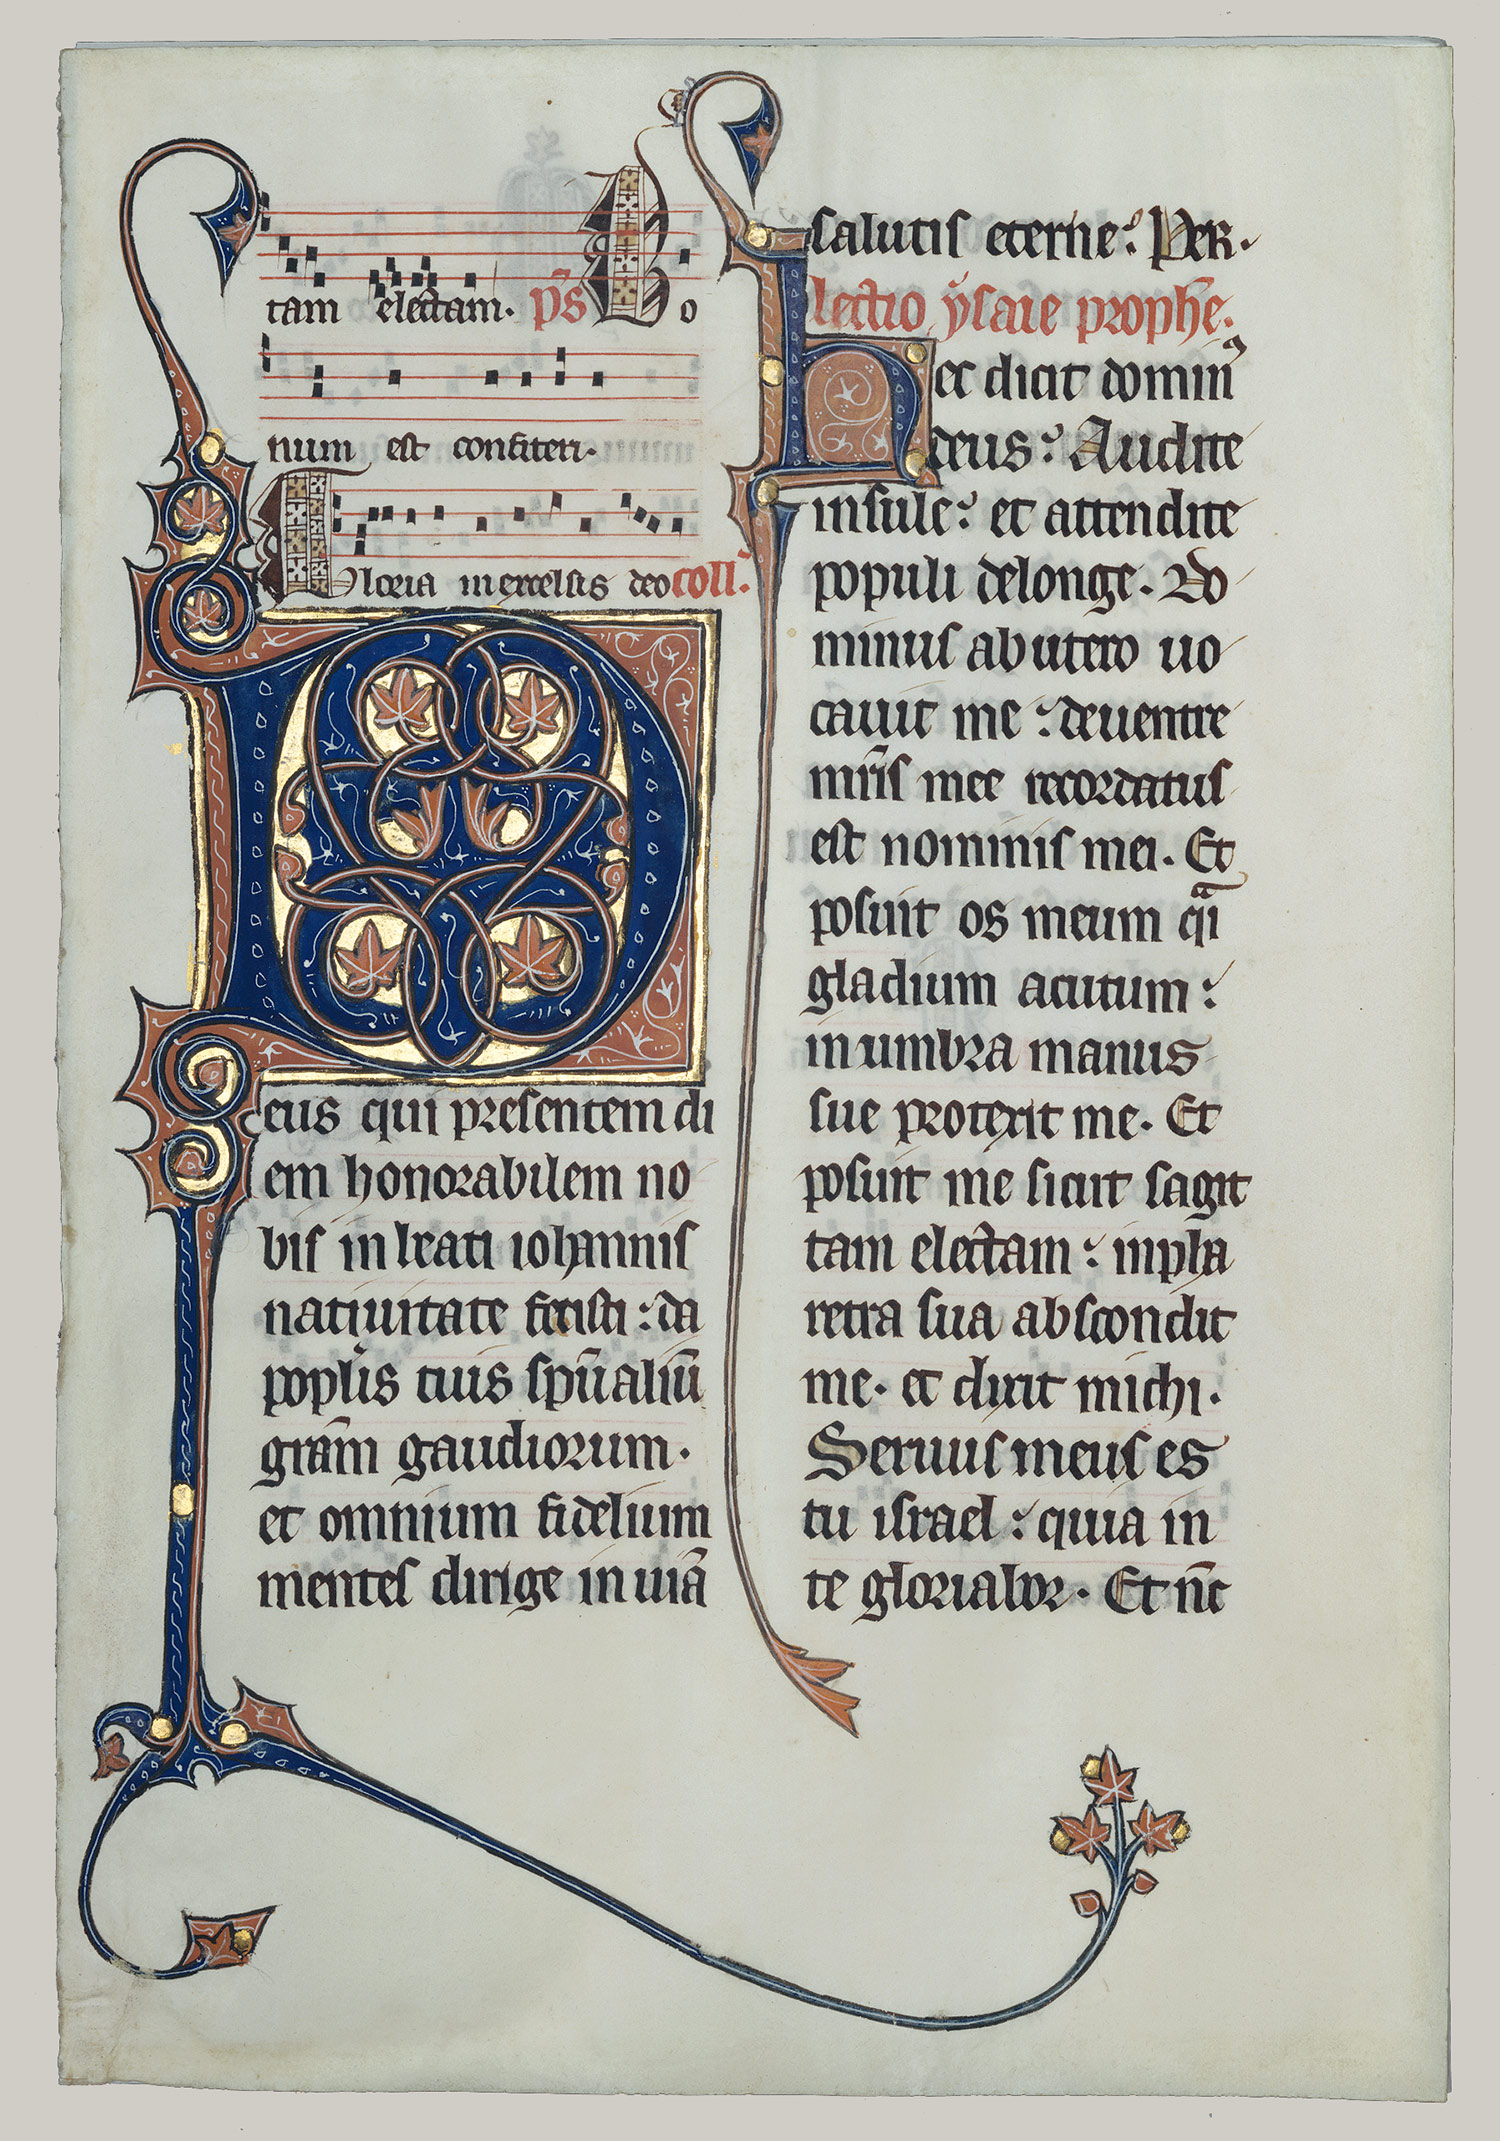 tam electam. p̄s Bo
num est confiteri.
Gloria in excelsis deo coll̄.
Deus qui presentem di
em honorabilem no
bis in beati iohannis
natiuitate fecisti : da
popl̄is tuis sp̄ualiū
gr̄am gaudiorum.
et omnium fidelium
mentes dirige in uiā
salutis eterne : Per.
lectio ysaie prophē.
Hec dicit dominꝰ
deus : Audite
insule : et attendite
populi delonge. Do
minus ab utero uo
cauit me : de uentre
mr̄is mee recordatus
est nominis mei. Et
posuit os meum qͣi
gladium acutum :
in umbra manus
sue protexit me. Et
posuit me sicut sagit
tam electam : in pha
retra sua abscondit
me. et dixit michi.
Seruus meus es
tu israel : quia in
te gloriabor. Et nc̄